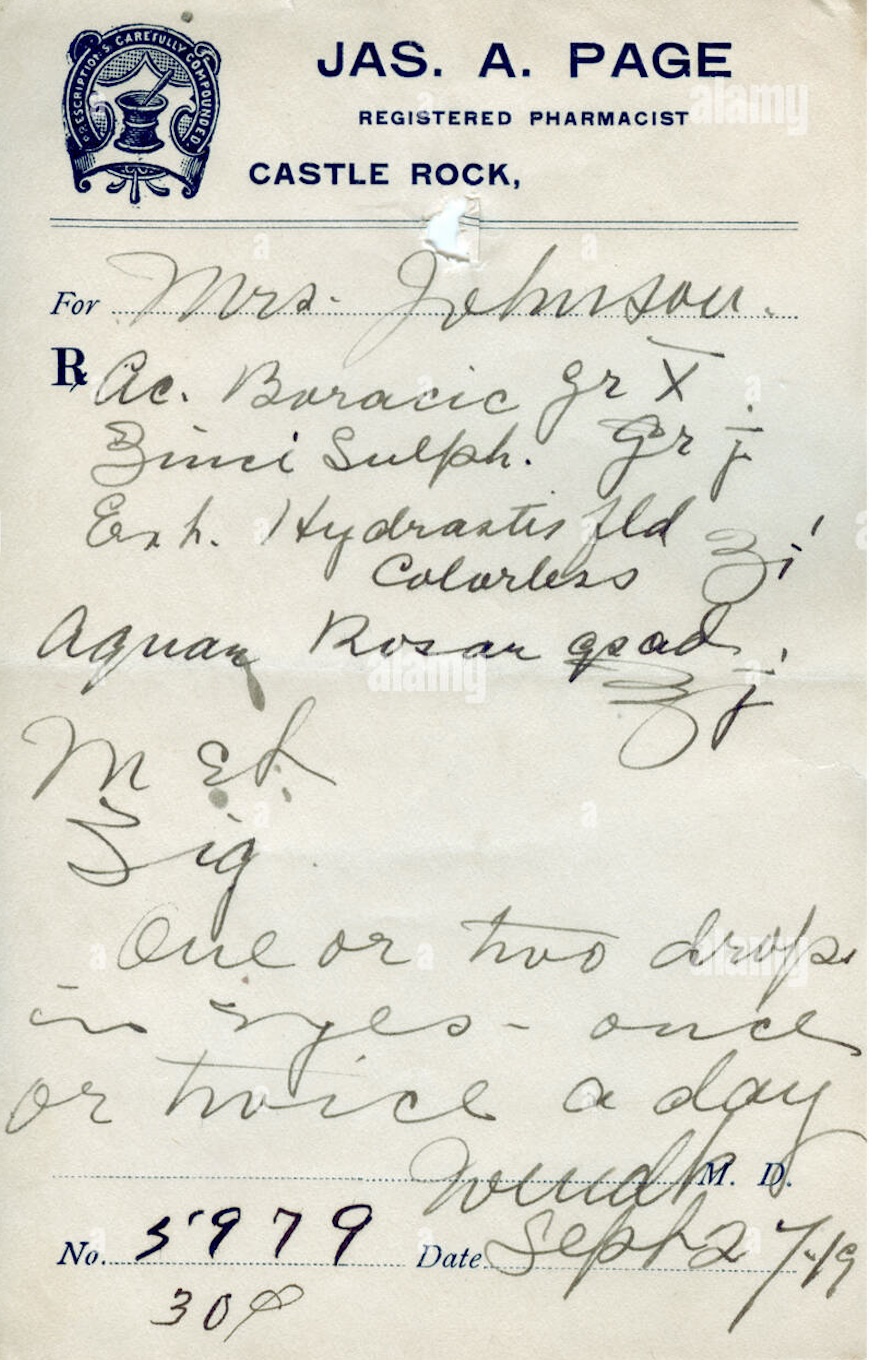 PRESCRIPTIONS CAREFULLY COMPOUNDED.
JAS. A. PAGE
REGISTERED PHARMACIST
CASTLE ROCK,
For Mrs. Johnson.
℞ Ac. Boracic Gr X
Zinci Sulph. Gr j
Ext. Hydrastis fld
Colorless ʒi
Aquae Rosae qsad
℥j
M
Sig
One or two drops
in eyes - once
or twice a day
M. D.
No. 5979 Date Sept 27-19
30¢
alamy